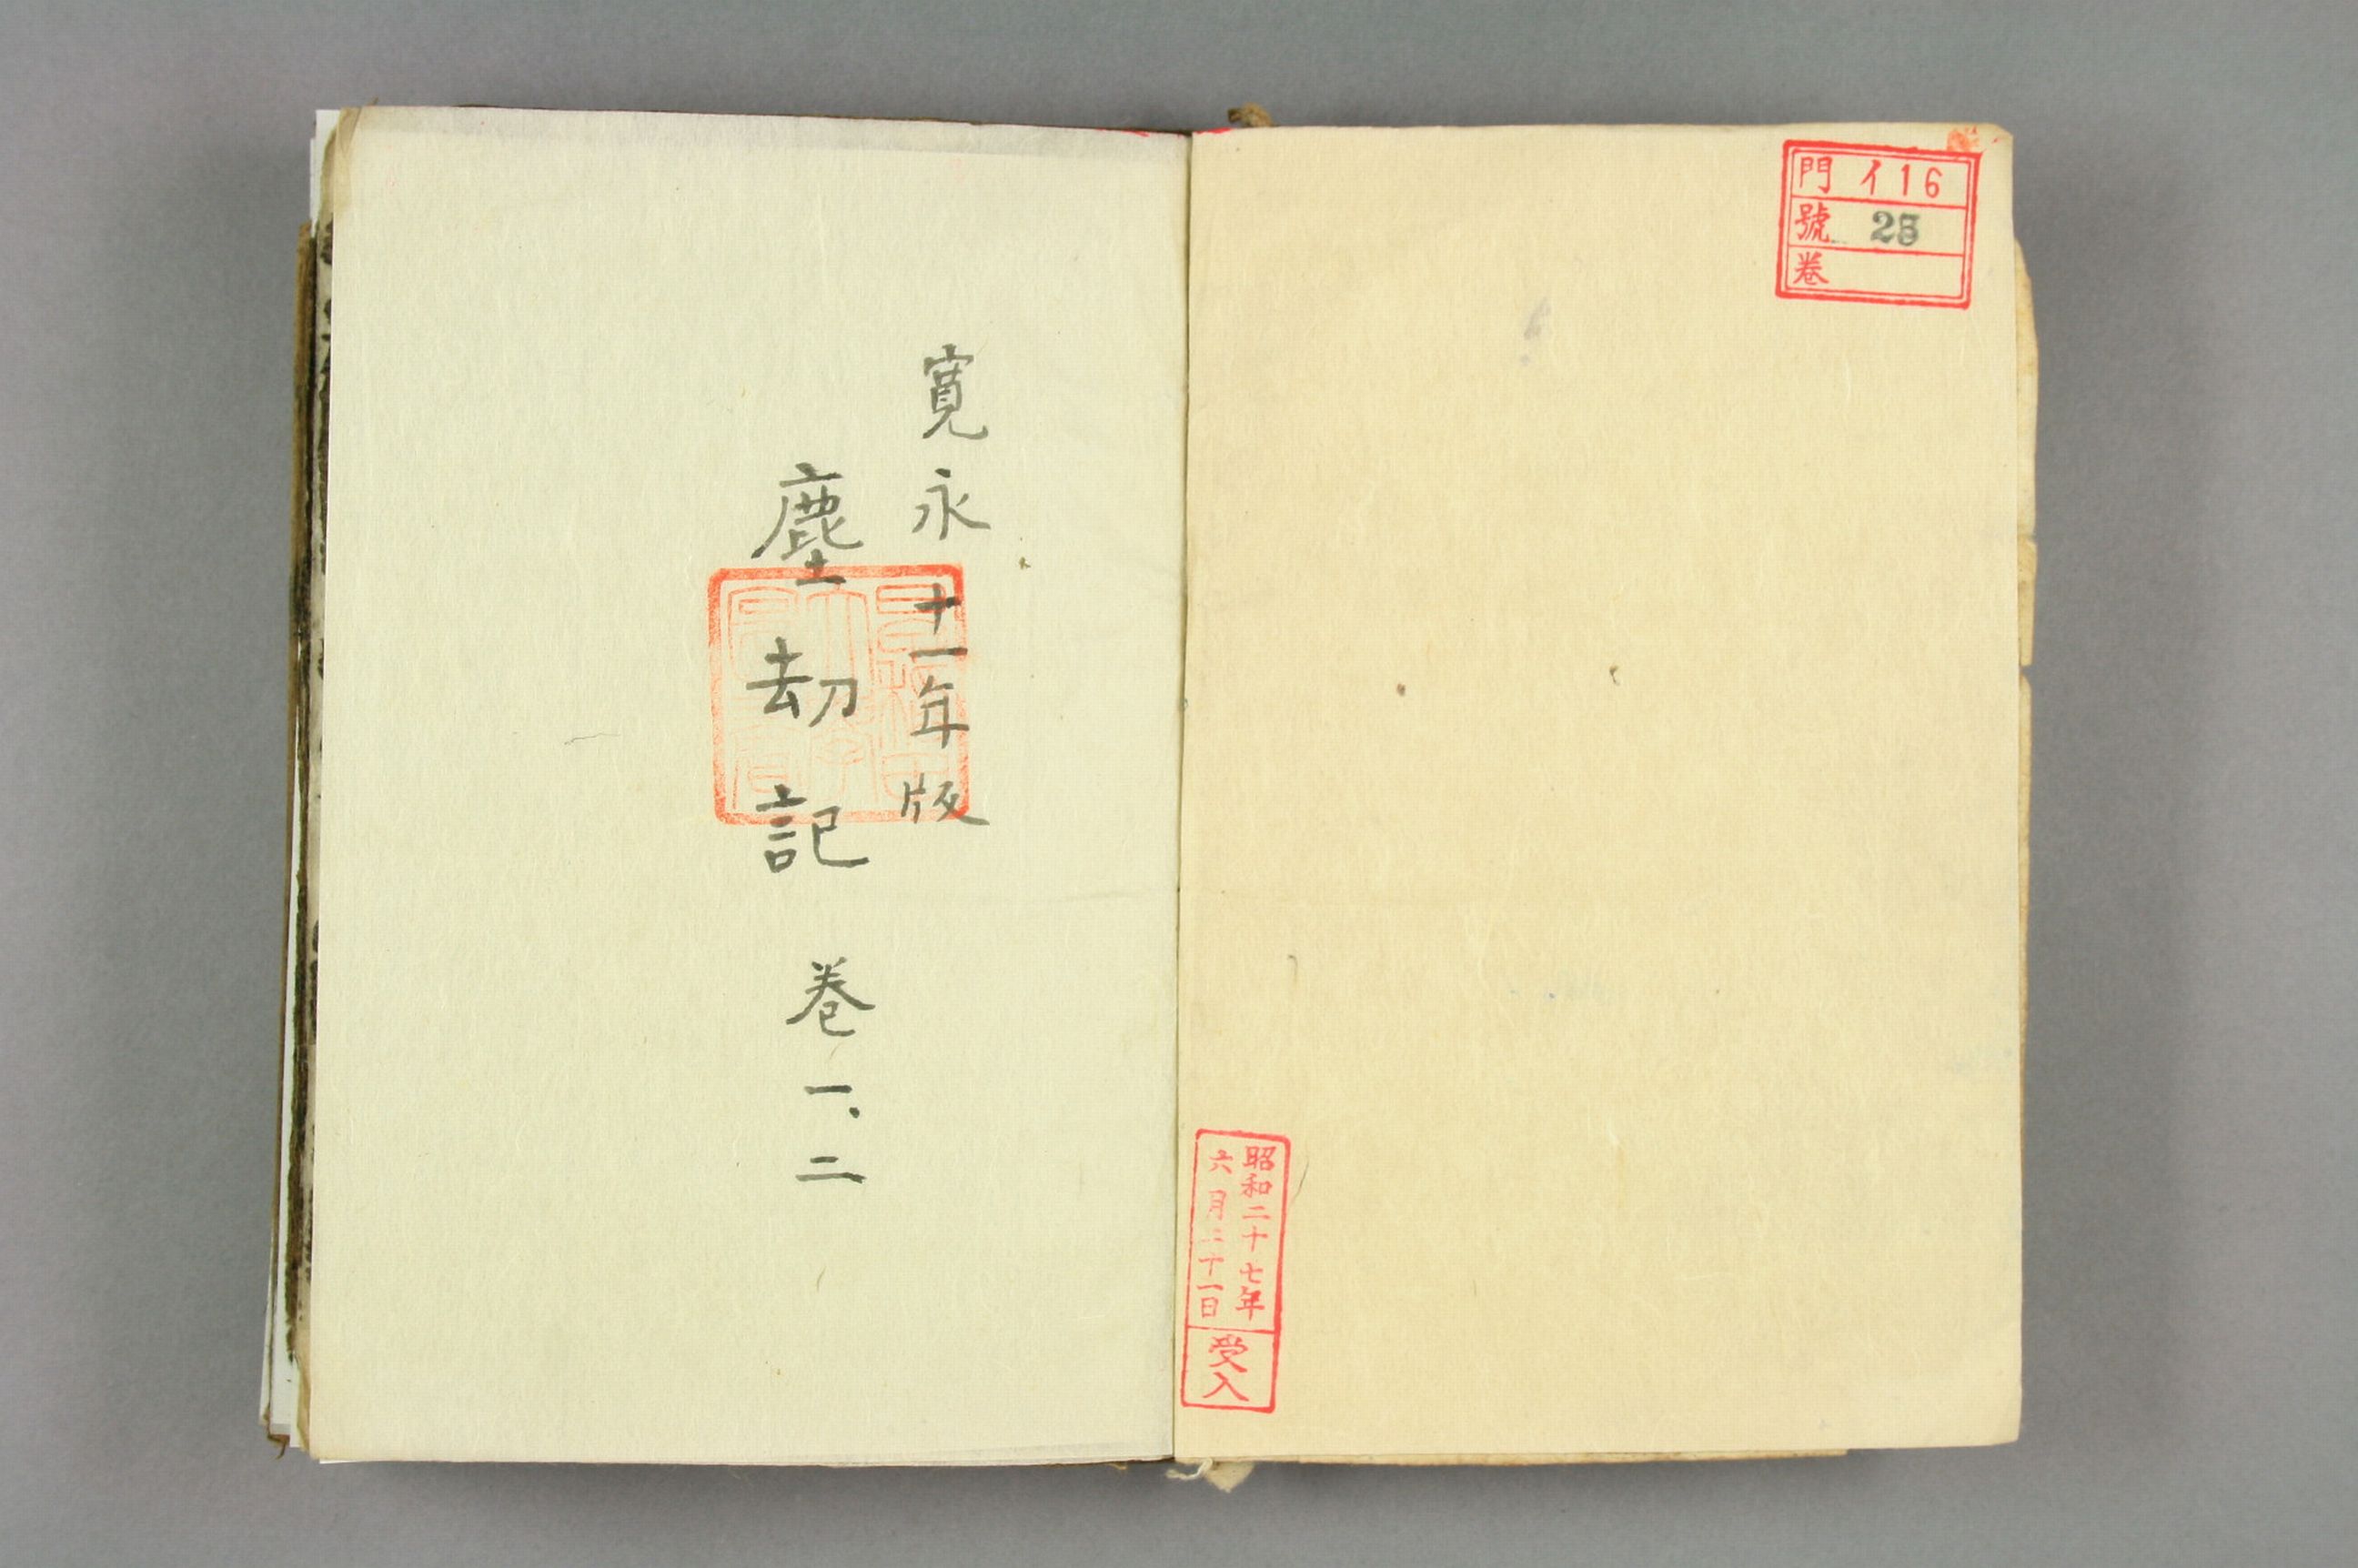 門 イ16
號 25
卷
昭和二十七年
六月二十一日
受入
寛永十一年版
塵劫記 巻一、二